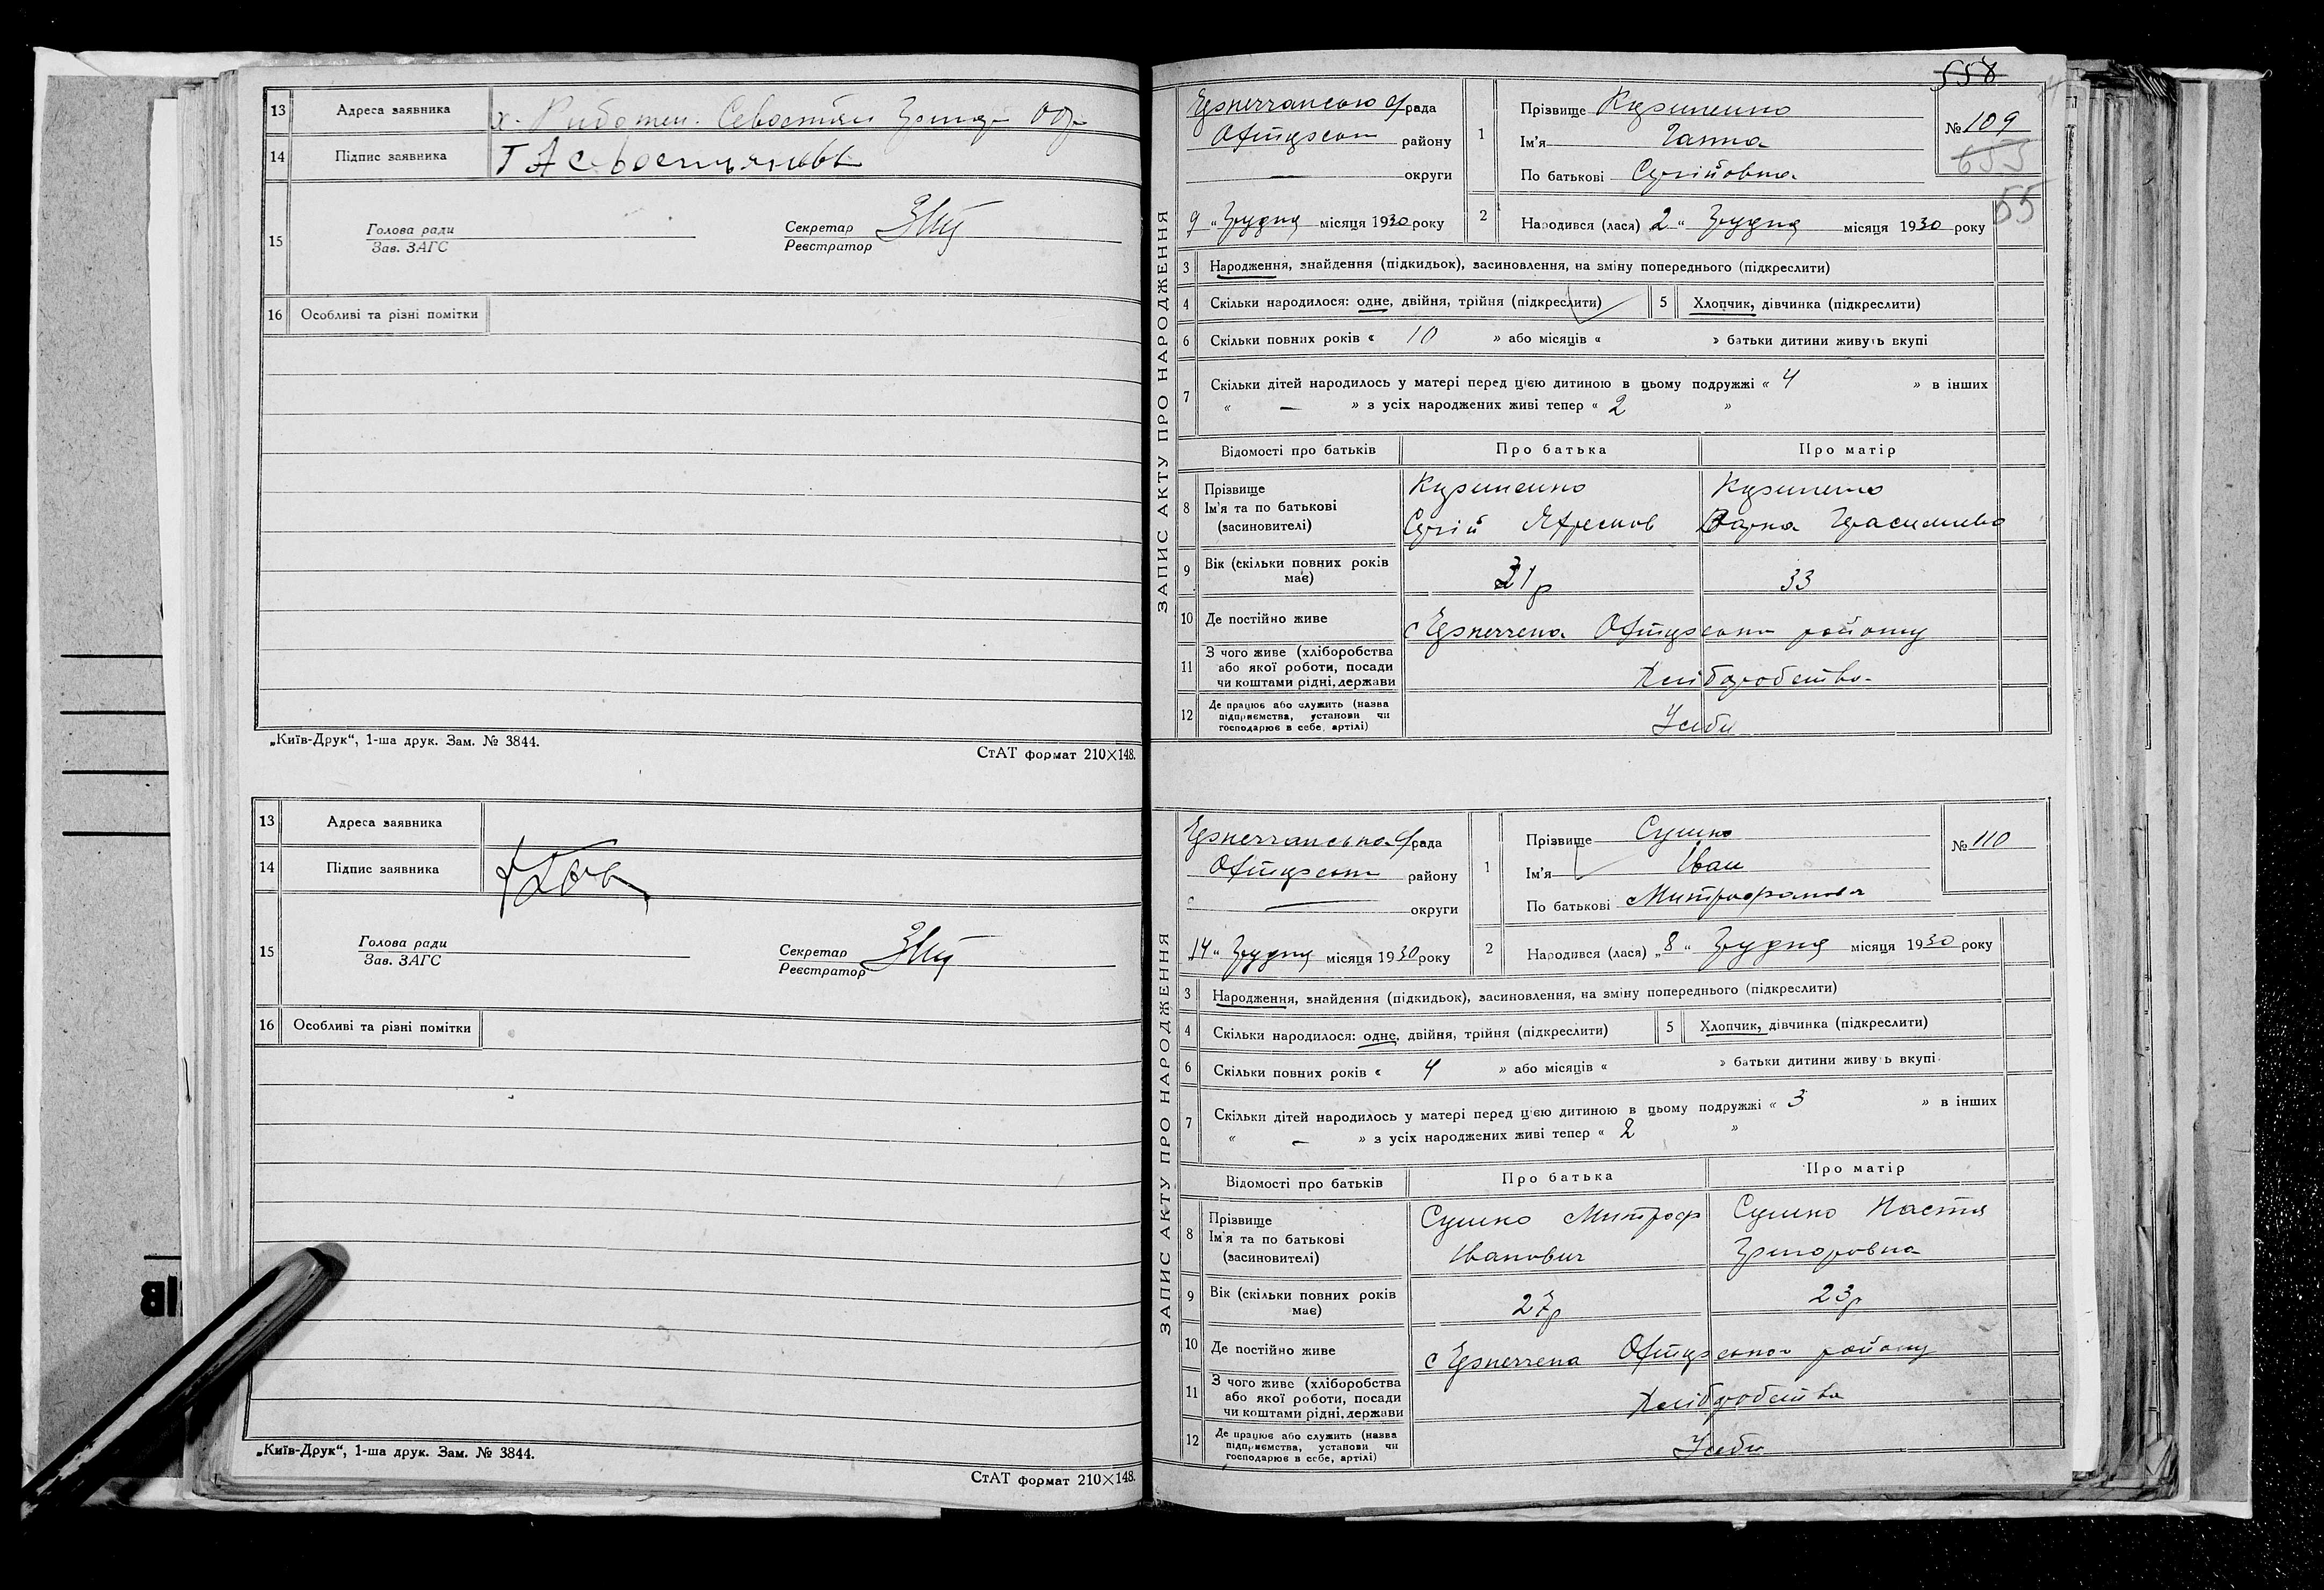 13 Адреса заявника х.
14 Підпис заявника
15 Голова ради
Зав. ЗАГС
Секретар
Реєстратор
16 Особливі та різні помітки
„Київ-Друк“, 1-ша друк. Зам. № 3844.
СтАТ формат 210×148.
13 Адреса заявника
14 Підпис заявника
15 Голова ради
Зав. ЗАГС
Секретар
Реєстратор
16 Особливі та різні помітки
„Київ-Друк“, 1-ша друк. Зам. № 3844.
СтАТ формат 210×148.
558
ЗАПИС АКТУ ПРО НАРОДЖЕННЯ
рада
району
округи
9 „ Грудня місяця 1930 року
1 Прізвище
Ім'я Ганна
По батькові Сергійовна
№ 109
653
55
2 Народився (лася) 2 „ Грудня місяця 1930 року
3 Народження, знайдення (підкидьок), засиновлення, на зміну попереднього (підкреслити)
4 Скільки народилося: одне, двійня, трійня (підкреслити) 5 Хлопчик, дівчинка (підкреслити)
6 Скільки повних років « 10 » або місяців « » батьки дитини живуть вкупі
7 Скільки дітей народилось у матері перед цією дитиною в цьому подружжі « 4 » в інших
« — » з усіх народжених живі тепер « 2 »
Відомості про батьків Про батька Про матір
8 Прізвище
Ім'я та по батькові Сергій
(засиновителі)
9 Вік (скільки повних років має) 31 р 33
10 Де постійно живе с району
11 З чого живе (хліборобства або якої роботи, посади чи коштами рідні, держави Хліборобства
12 Де працює або служить (назва підприємства, установи чи господарює в себе, артілі) У себе
ЗАПИС АКТУ ПРО НАРОДЖЕННЯ
рада
району
округи
14 „ Грудня місяця 1930 року
1 Прізвище Сушко
Ім'я Іван
По батькові Митрофанович
№ 110
2 Народився (лася) „ 8 „ Грудня місяця 1930 року
3 Народження, знайдення (підкидьок), засиновлення, на зміну попереднього (підкреслити)
4 Скільки народилося: одне, двійня, трійня (підкреслити) 5 Хлопчик, дівчинка (підкреслити)
6 Скільки повних років « 4 » або місяців « » батьки дитини живуть вкупі
7 Скільки дітей народилось у матері перед цією дитиною в цьому подружжі « 3 » в інших
« — » з усіх народжених живі тепер « 2 »
Відомості про батьків Про батька Про матір
8 Прізвище Сушко Митроф Сушко Настя
Ім'я та по батькові Іванович Григоровна
(засиновителі)
9 Вік (скільки повних років має) 27 р 23 р
10 Де постійно живе с району
11 З чого живе (хліборобства або якої роботи, посади чи коштами рідні, держави Хліборобства
12 Де працює або служить (назва підприємства, установи чи господарює в себе, артілі) У себе